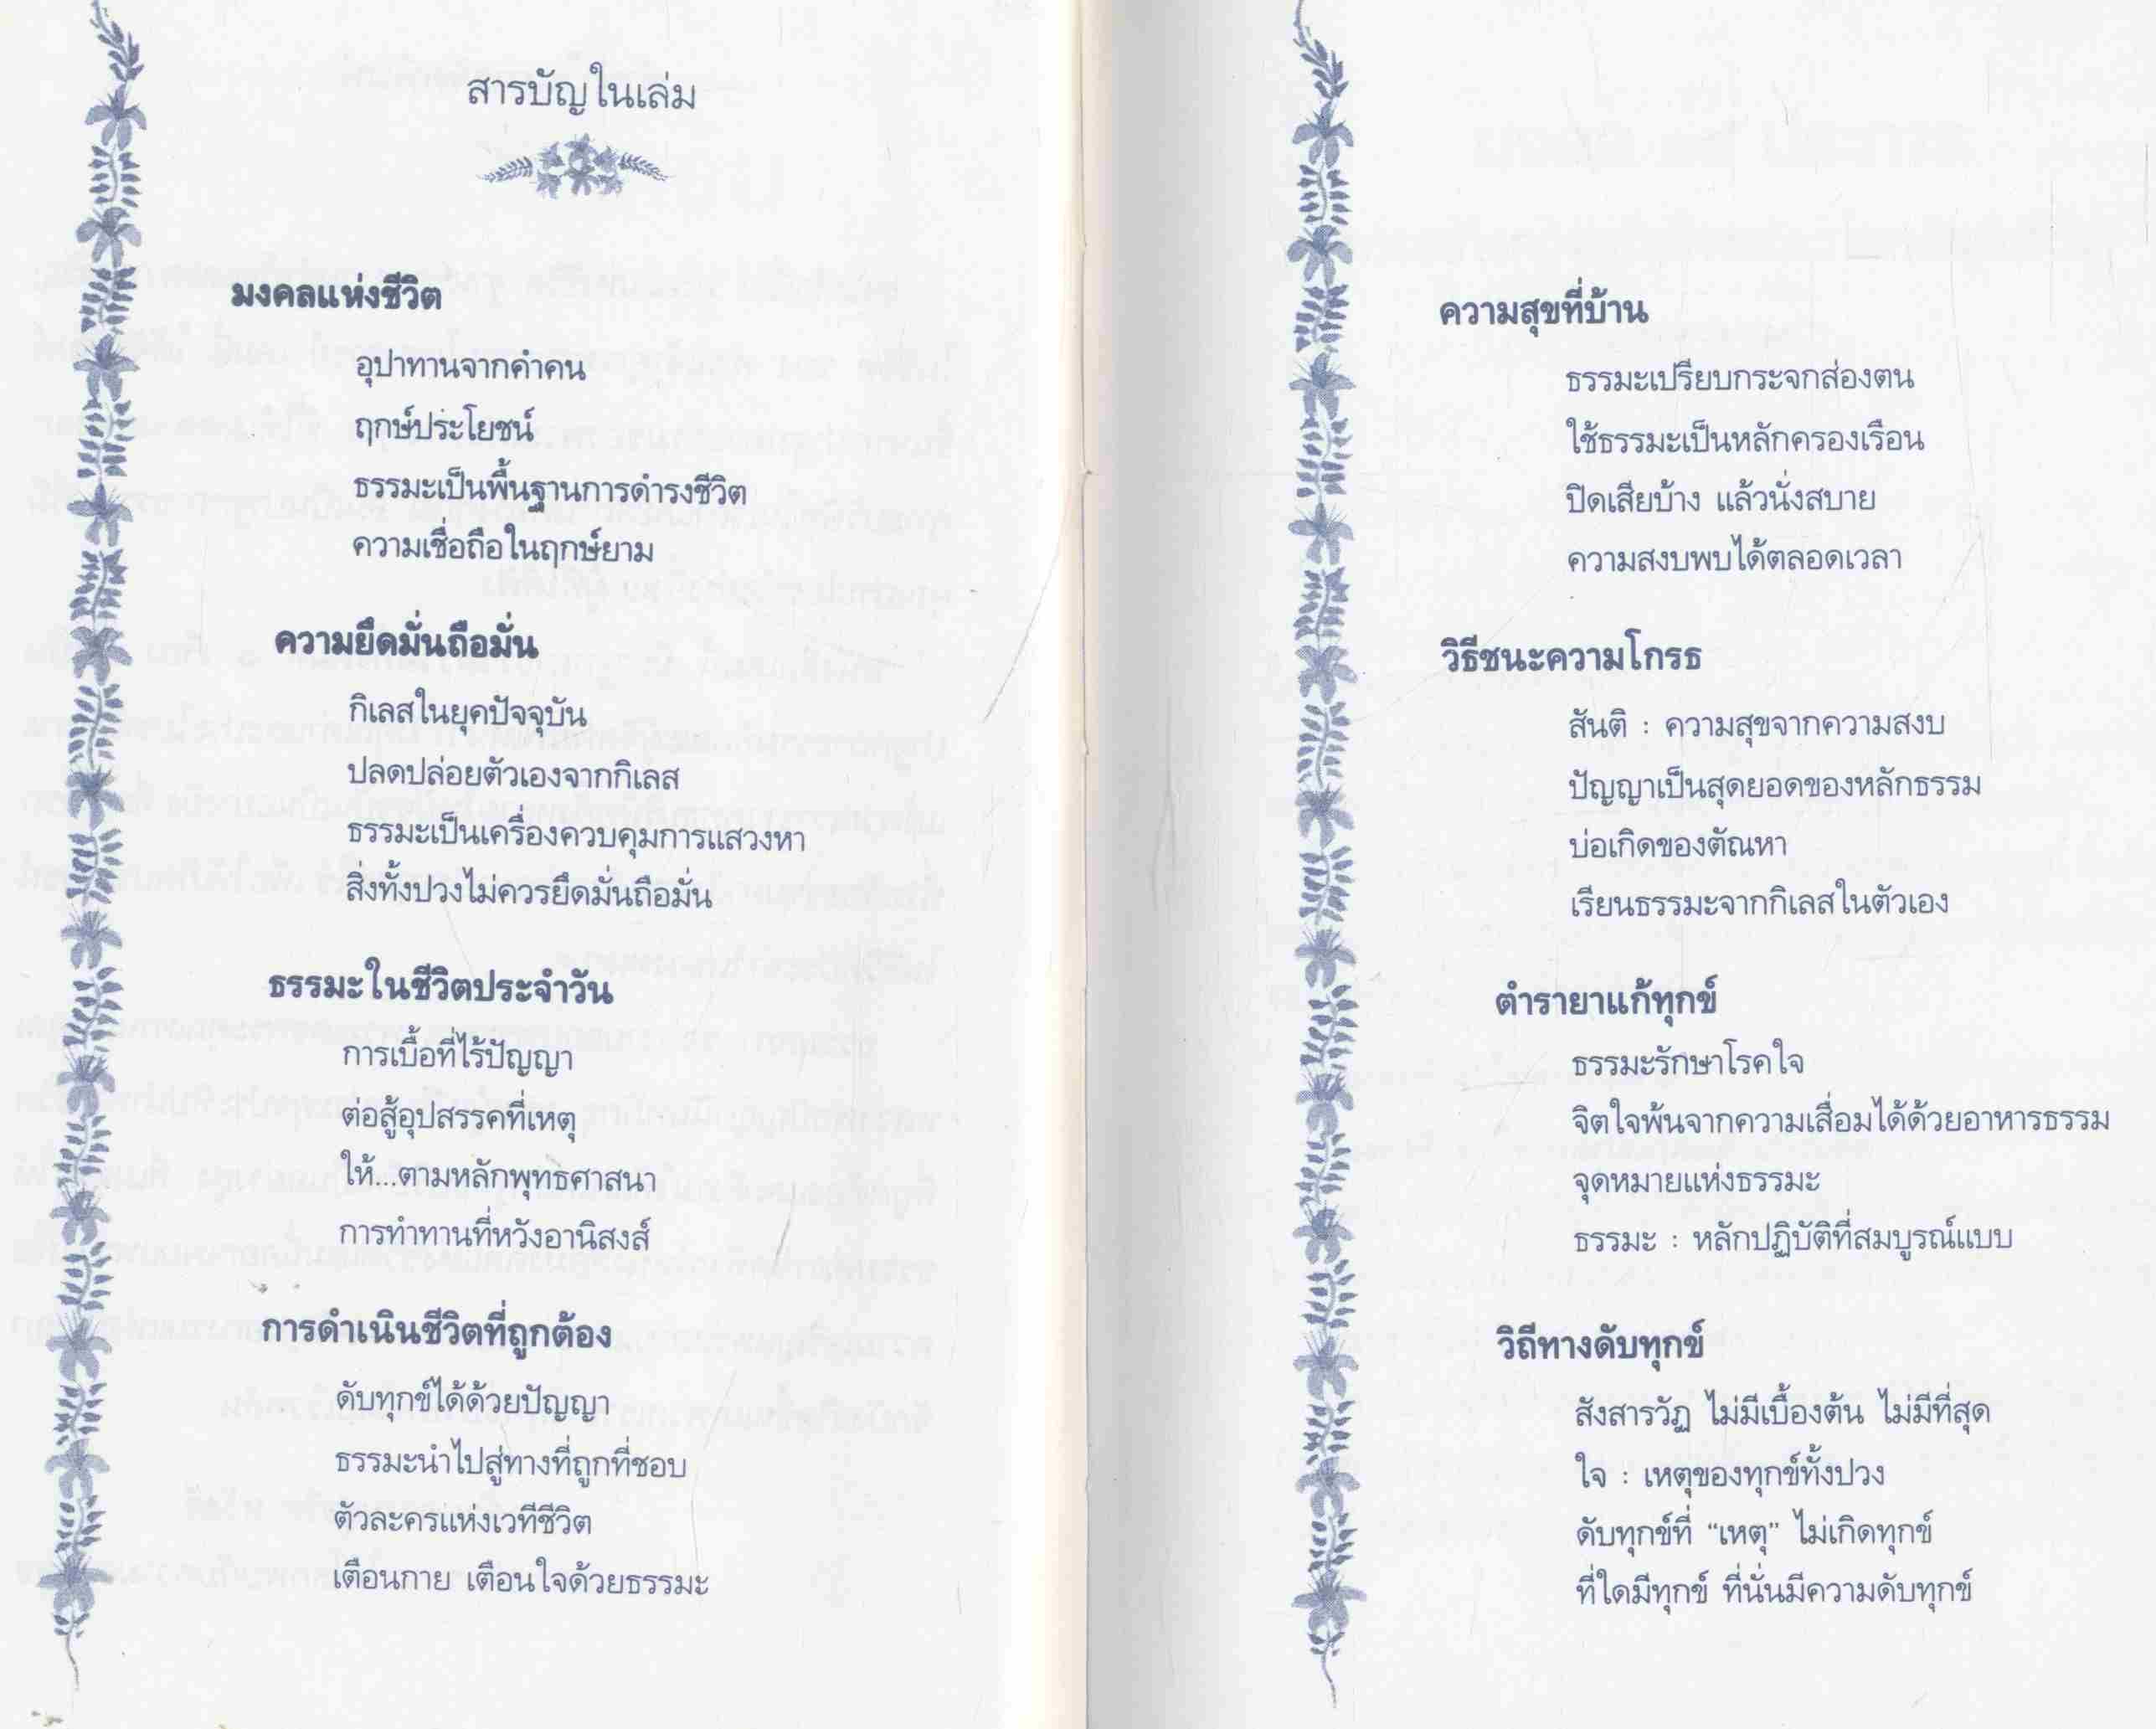 สารบัญในเล่ม
มงคลแห่งชีวิต
อุปาทานจากคำคน
ฤกษ์ประโยชน์
ธรรมะเป็นพื้นฐานการดำรงชีวิต
ความเชื่อถือในฤกษ์ยาม
ความยึดมั่นถือมั่น
กิเลสในยุคปัจจุบัน
ปลดปล่อยตัวเองจากกิเลส
ธรรมะเป็นเครื่องควบคุมการแสวงหา
สิ่งทั้งปวงไม่ควรยึดมั่นถือมั่น
ธรรมะในชีวิตประจำวัน
การเบื้อที่ไร้ปัญญา
ต่อสู้อุปสรรคที่เหตุ
ให้...ตามหลักพุทธศาสนา
การทำทานที่หวังอานิสงส์
การดำเนินชีวิตที่ถูกต้อง
ดับทุกข์ได้ด้วยปัญญา
ธรรมะนำไปสู่ทางที่ถูกที่ชอบ
ตัวละครแห่งเวทีชีวิต
เตือนกาย เตือนใจด้วยธรรมะ
ความสุขที่บ้าน
ธรรมะเปรียบกระจกส่องตน
ใช้ธรรมะเป็นหลักครองเรือน
ปิดเสียบ้าง แล้วนั่งสบาย
ความสงบพบได้ตลอดเวลา
วิธีชนะความโกรธ
สันติ : ความสุขจากความสงบ
ปัญญาเป็นสุดยอดของหลักธรรม
บ่อเกิดของตัณหา
เรียนธรรมะจากกิเลสในตัวเอง
ตำรายาแก้ทุกข์
ธรรมะรักษาโรคใจ
จิตใจพ้นจากความเสื่อมได้ด้วยอาหารธรรม
จุดหมายแห่งธรรมะ
ธรรมะ : หลักปฏิบัติที่สมบูรณ์แบบ
วิถีทางดับทุกข์
สังสารวัฏ ไม่มีเบื้องต้น ไม่มีที่สุด
ใจ : เหตุของทุกข์ทั้งปวง
ดับทุกข์ที่ “เหตุ” ไม่เกิดทุกข์
ที่ใดมีทุกข์ ที่นั่นมีความดับทุกข์